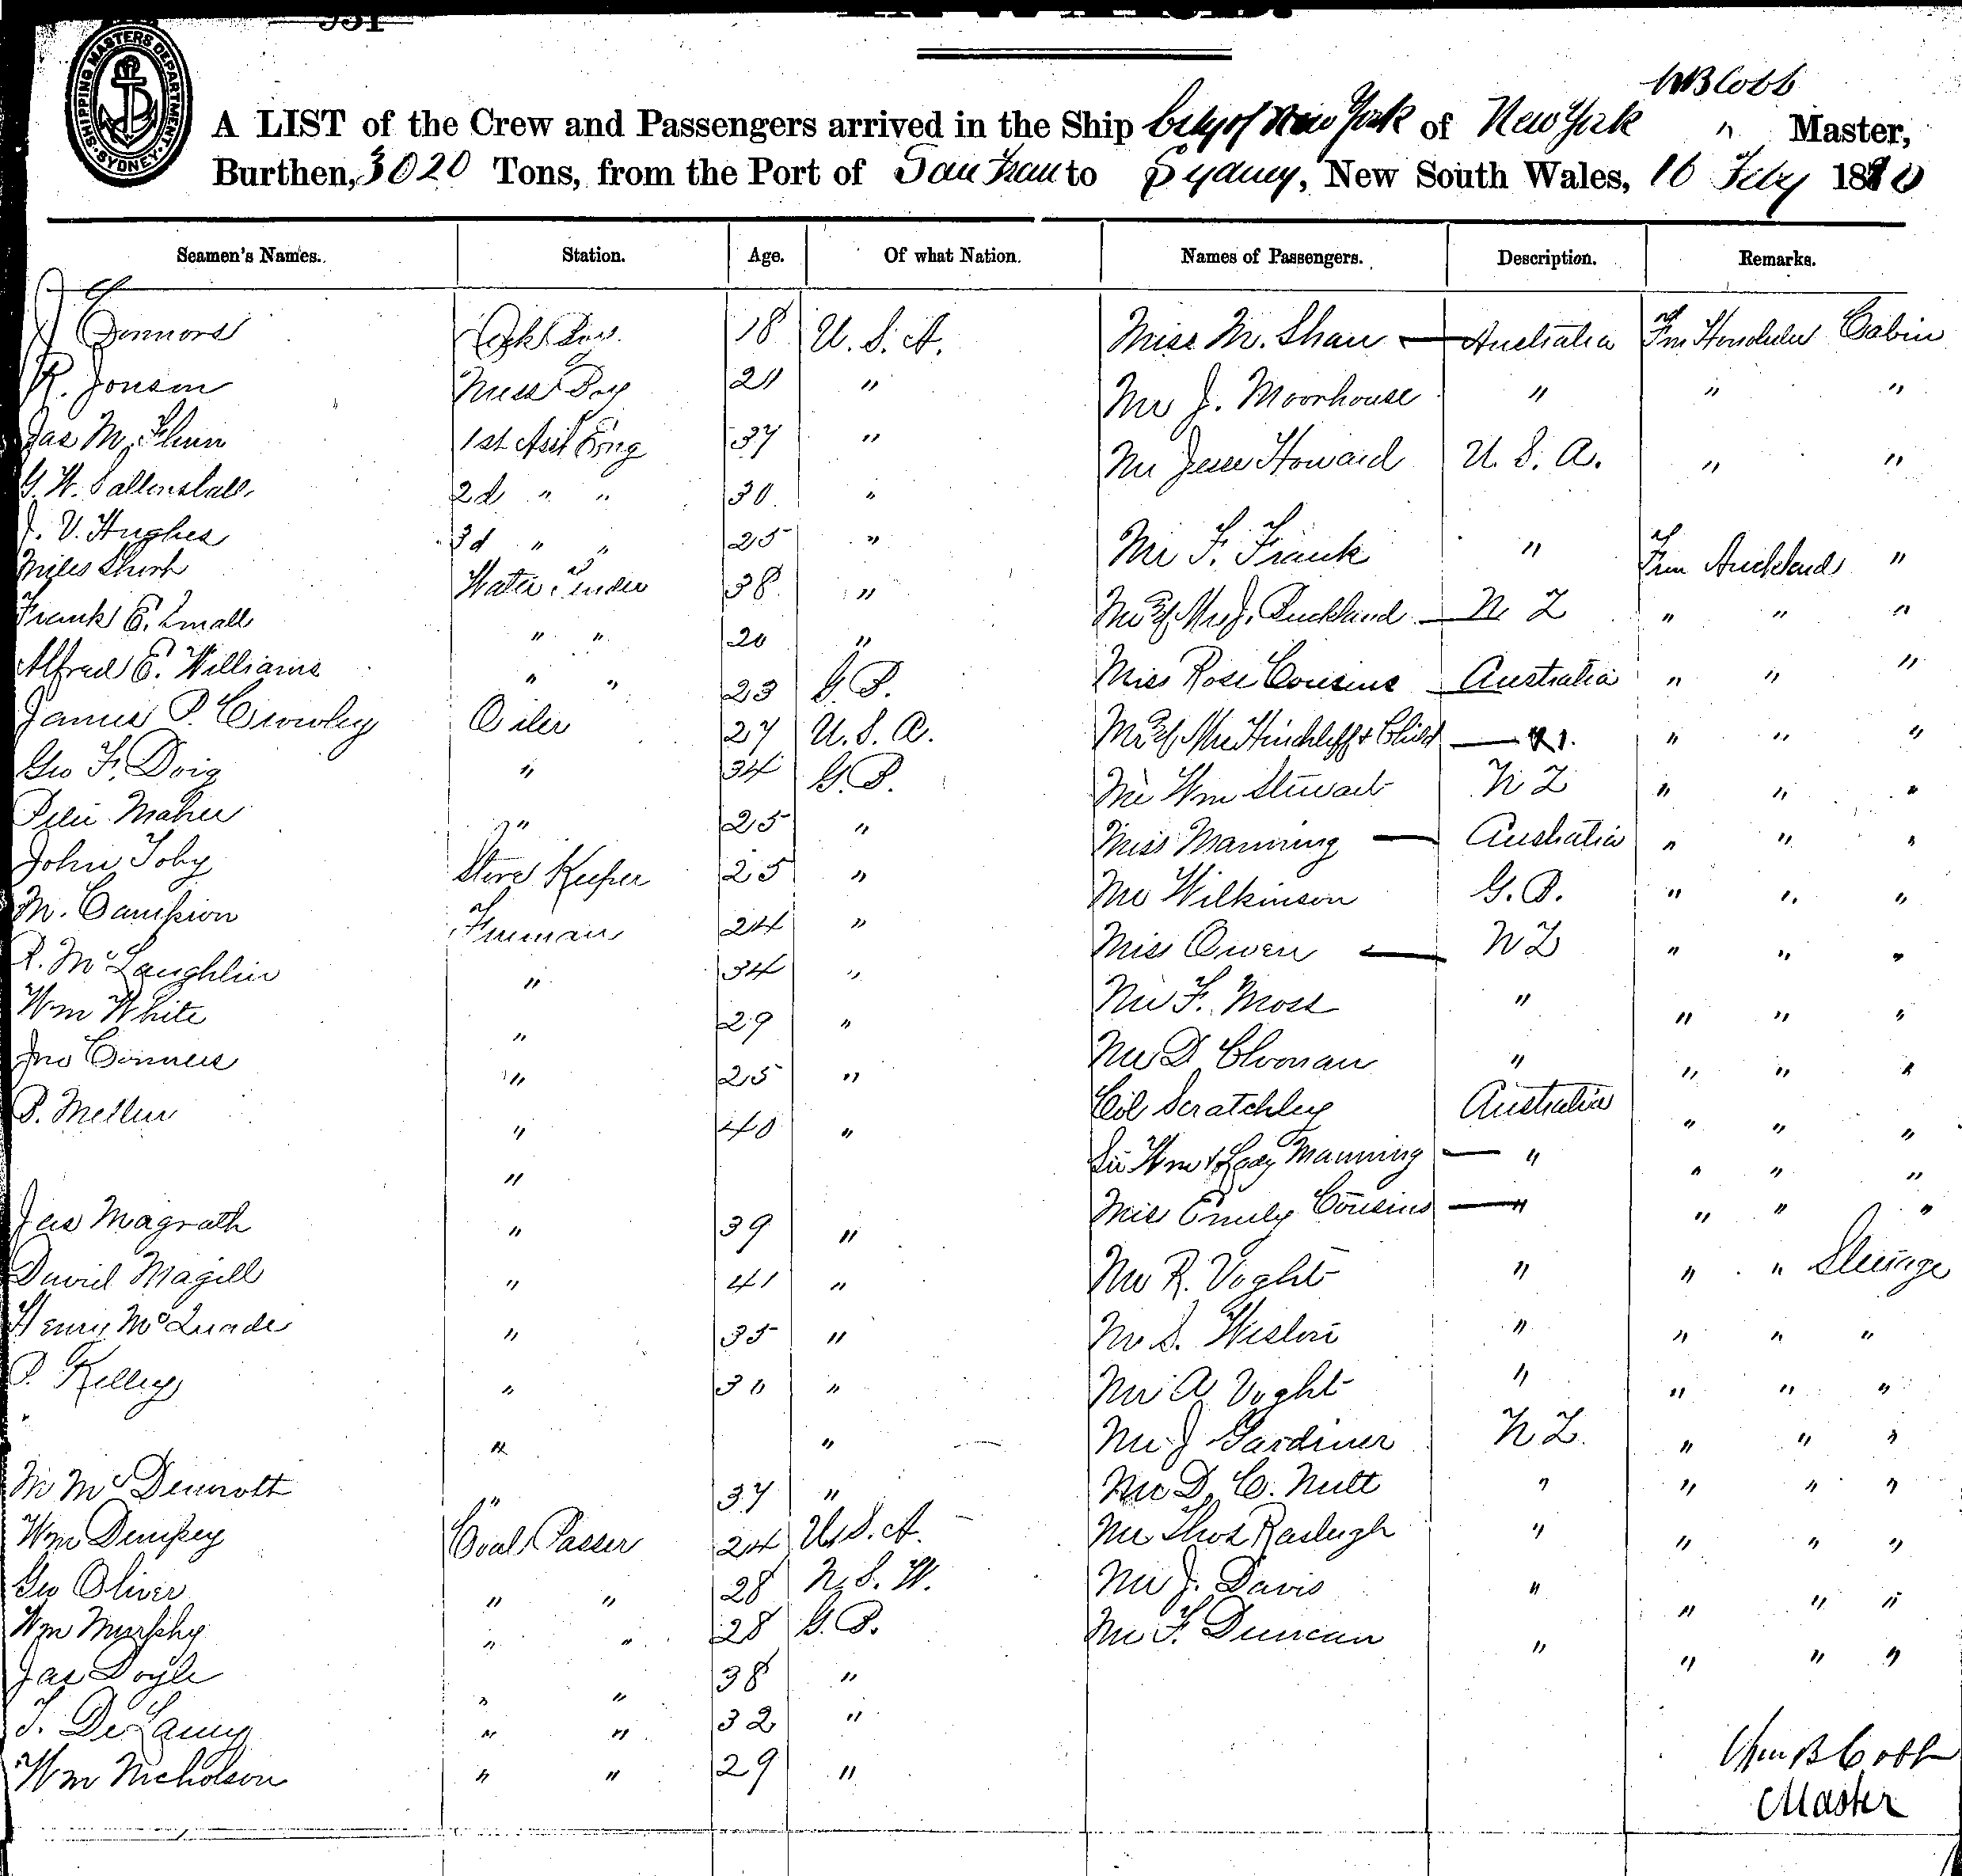 SHIPPING MASTERS DEPARTMENT SYDNEY
A LIST of the Crew and Passengers arrived in the Ship City of New York of New York WB Cobb " Master,
Burthen, 3020 Tons, from the Port of San Fran to Sydney, New South Wales, 16 Feby 1880
Seamen's Names. Station. Age. Of what Nation. Names of Passengers. Description. Remarks.
J Connors 18 U.S.A. Miss M. Shaw — Australia Fm Honolulu Cabin
R. Jonson Mess Boy 21 " Mr J. Moorhouse " " "
Jas M. Flinn 1st Asst Eng 37 " Mr Jesse Howard U.S.A. " "
G. W. 2d " " 30 "
J. V. Hughes 3d " " 25 " Mr F. Frank " Fm Auckland "
Miles Water Tender 38 "
Frank E. Small " " 20 " Mr & Mrs J. Buckland — N Z " " "
Alfred E. Williams " " 23 G.B. Miss Rose Cousins — Australia " " "
James P. Crowley Oiler 27 U.S.A. Mr & Mrs Hinchliff & Child — " " "
Geo F. Doig " 34 G.B. Mr Wm Stewart N Z " " "
Peter Maher " 25 " Miss Manning — Australia " " "
John Toby Store Keeper 25 " Mr Wilkinson G.B. " " "
M. Campion Fireman 24 " Miss Owen — N Z " " "
R. McLaughlin " 34 " Mr F. Moss " " " "
Wm White " 29 " Mr D Cloonan " " " "
Jno Conners " 25 " Col Scratchley Australia " " "
P. Mellen " 40 " Sir Wm & Lady Manning — " " " "
"
Jas Magrath " 39 " Miss Emily Cousins — " " " "
David Magill " 41 " Mr R. Voght " " " Steerage
Henry McQuade " 35 " Mr S. " " " "
P. Kelley " 30 " Mr A Voght " " " "
" " Mr J Gardiner N Z. " " "
M McDermott " 37 " Mr D. C. Nutt " " " "
Wm Dempsey Coal Passer 24 U.S.A. Mr Thos Rasleigh " " " "
Geo Oliver " " 28 N.S.W. Mr J. Davis " " " "
Wm Murphy " " 28 G.B. Mr F. Duncan " " " "
Jas Doyle " " 38 "
T. DeLaney " " 32 "
Wm Nicholson " " 29 "
Wm B Cobb
Master